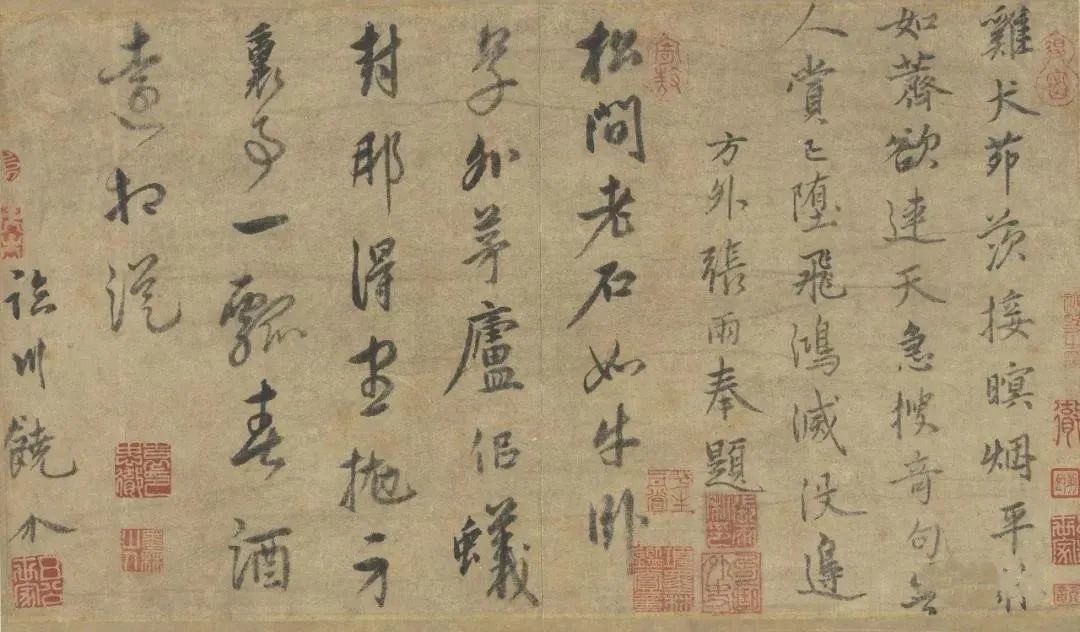 雞犬茆茨接暝烟平林
如薺欲連天急搜奇句無
人賞已墮飛鴻滅没邊
方外張雨奉題
松間老石如牛卧
草外茅廬佀蟻
封那得盡抛
裏事一瓢春酒
遠相從
臨川饒介